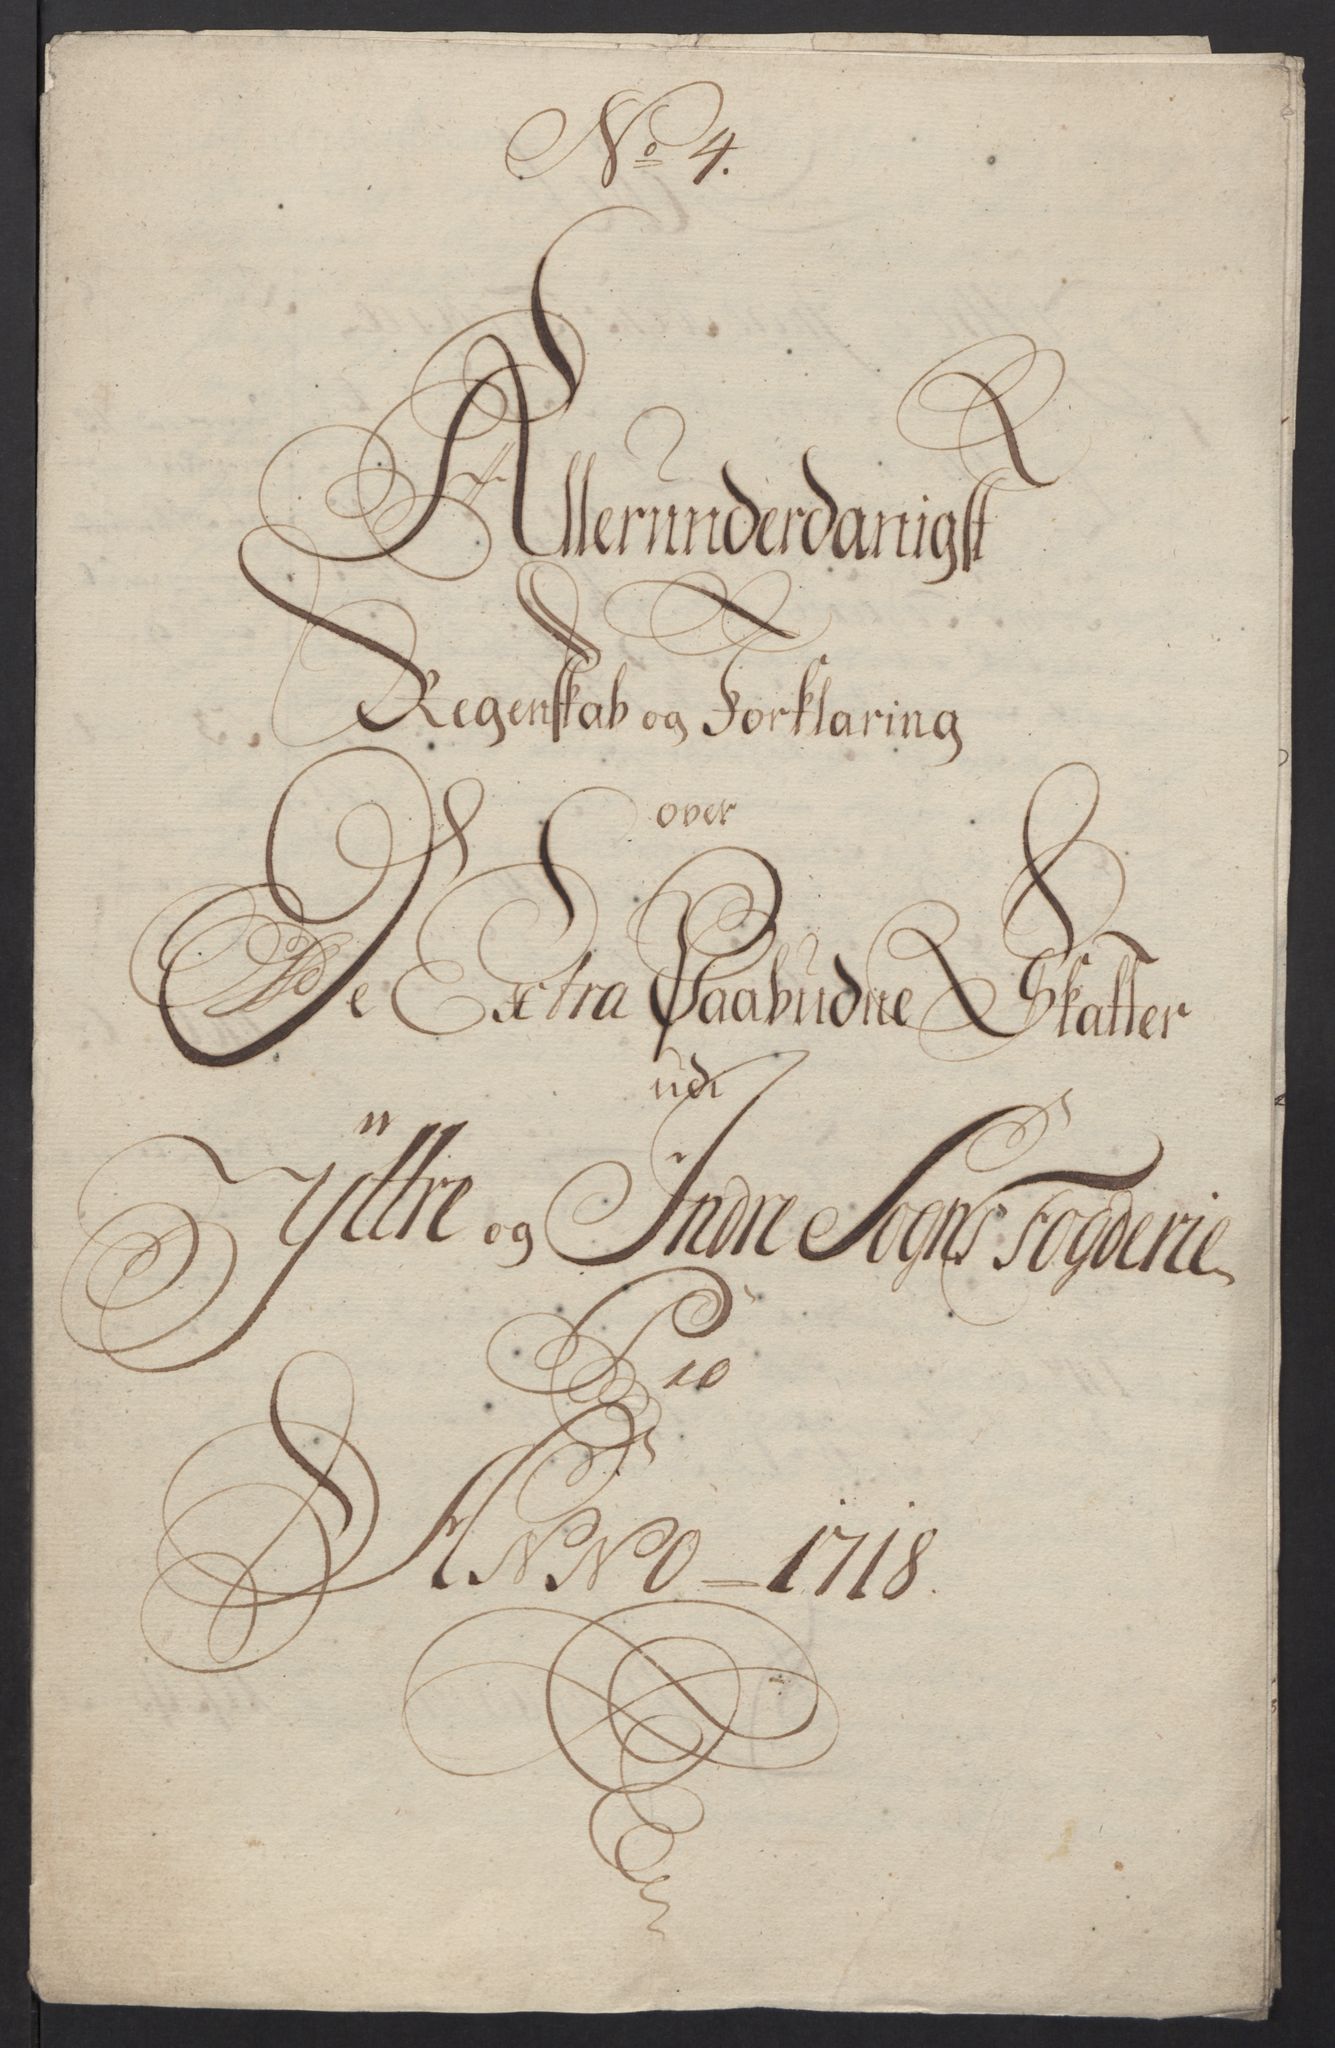 No 4.
Allerunderdanigst
Regenskab og Forklaring
over
De Extra Paabudne Skatter
udi
Ÿttre og Indre Sogns Fogderie
Pro
ANNO 1718.